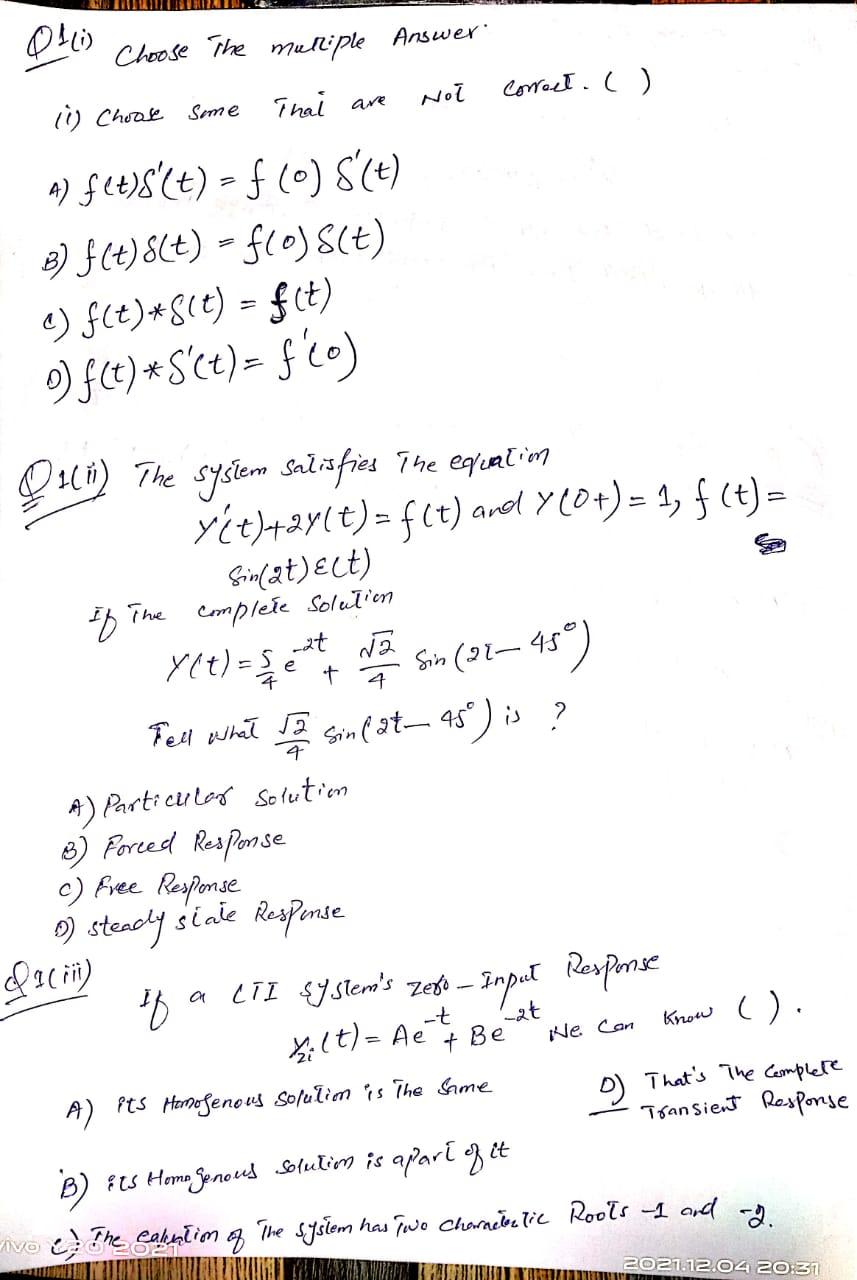 Q1(i) Choose The multiple Answer.
(i) Choose Some That are Not Correct. ( )
A) f(t)δ'(t) = f(0) δ'(t)
B) f(t)δ(t) = f(0)δ(t)
C) f(t)*δ(t) = f(t)
D) f(t)*δ'(t) = f'(0)
Q1(ii) The system satisfies The equation
y'(t)+2y(t) = f(t) and y(0+) = 1, f(t) =
Sin(2t)ε(t)
If The complete Solution
y(t) = 5/4 e^-2t + √2/4 Sin(2t-45°)
Tell what √2/4 Sin(2t-45°) is ?
A) Particular Solution
B) Forced Response
C) Free Response
D) steady state Response
Q1(iii)
If a LTI system's zero-Input Response
y_zi(t) = Ae^-t + Be^-2t We Can Know ( ).
A) its Homogenous Solution is The Same
D) That's The Complete
Transient Response
B) its Homogenous Solution is apart of it
C) The of The system has Two Roots -1 and -2.
vivo Y20 2021
2021.12.04 20:31